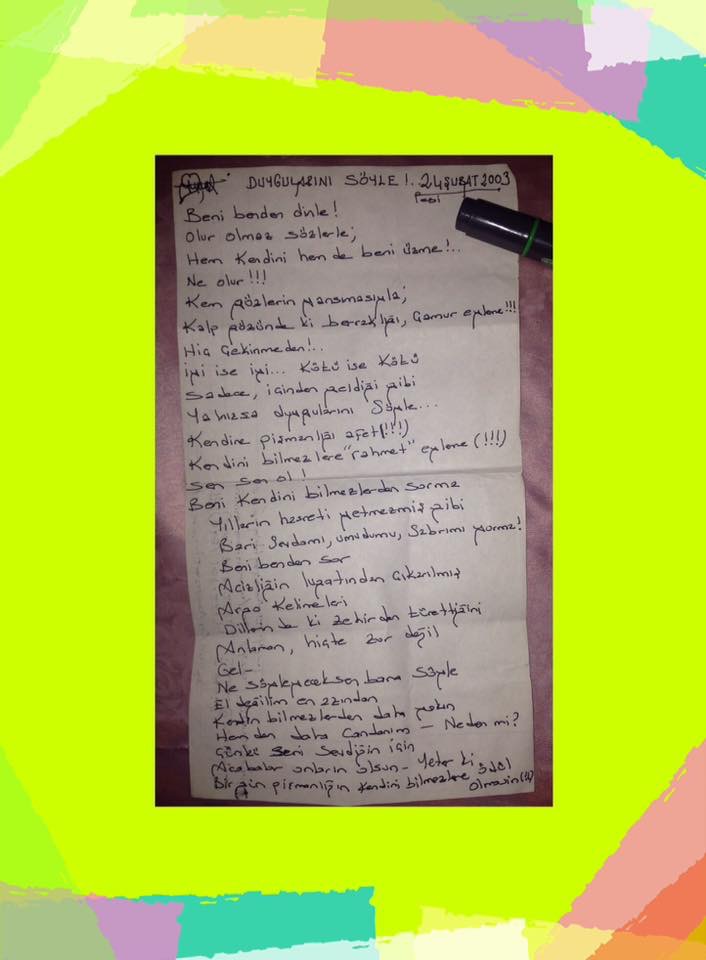 DUYGULARINI SÖYLE!. 24 ŞUBAT 2003
Beni benden dinle!
Olur olmaz sözlerle;
Hem Kendini hem de beni üzme!..
Ne olur!!!
Kem gözlerin yansımasıyla;
Kalp gözünde ki berraklığı, Çamur eyleme!!!
Hiç Çekinmeden!..
iyi ise iyi... Kötü ise Kötü
Sadece, içinden geldiği gibi
Yalnızsa duygularını Söyle...
Kendine pişmanlığı affet(!!!)
Kendini bilmezlere "rahmet" eyleme (!!!)
Sen sen ol!
Beni Kendini bilmezlerden sorma
Yılların hasreti yetmezmiş gibi
Bari Sevdamı, umudumu, Sabrımı yorma!
Beni benden sor
Acizliğin lugatından Çıkarılmış
Argo Kelimeleri
Dillerin de ki zehirden türettiğini
Anlamam, hiçte zor değil
Gel-
Ne söyleyeceksen bana Söyle
El değilim en azından
Kendin bilmezlerden daha yakın
Hemden daha Candanım - Neden mi?
Çünkü Seni Sevdiğim için
Acabalar onların olsun - Yeter ki
Bir gün pişmanlığın Kendini bilmezlere ödül
Olmasın